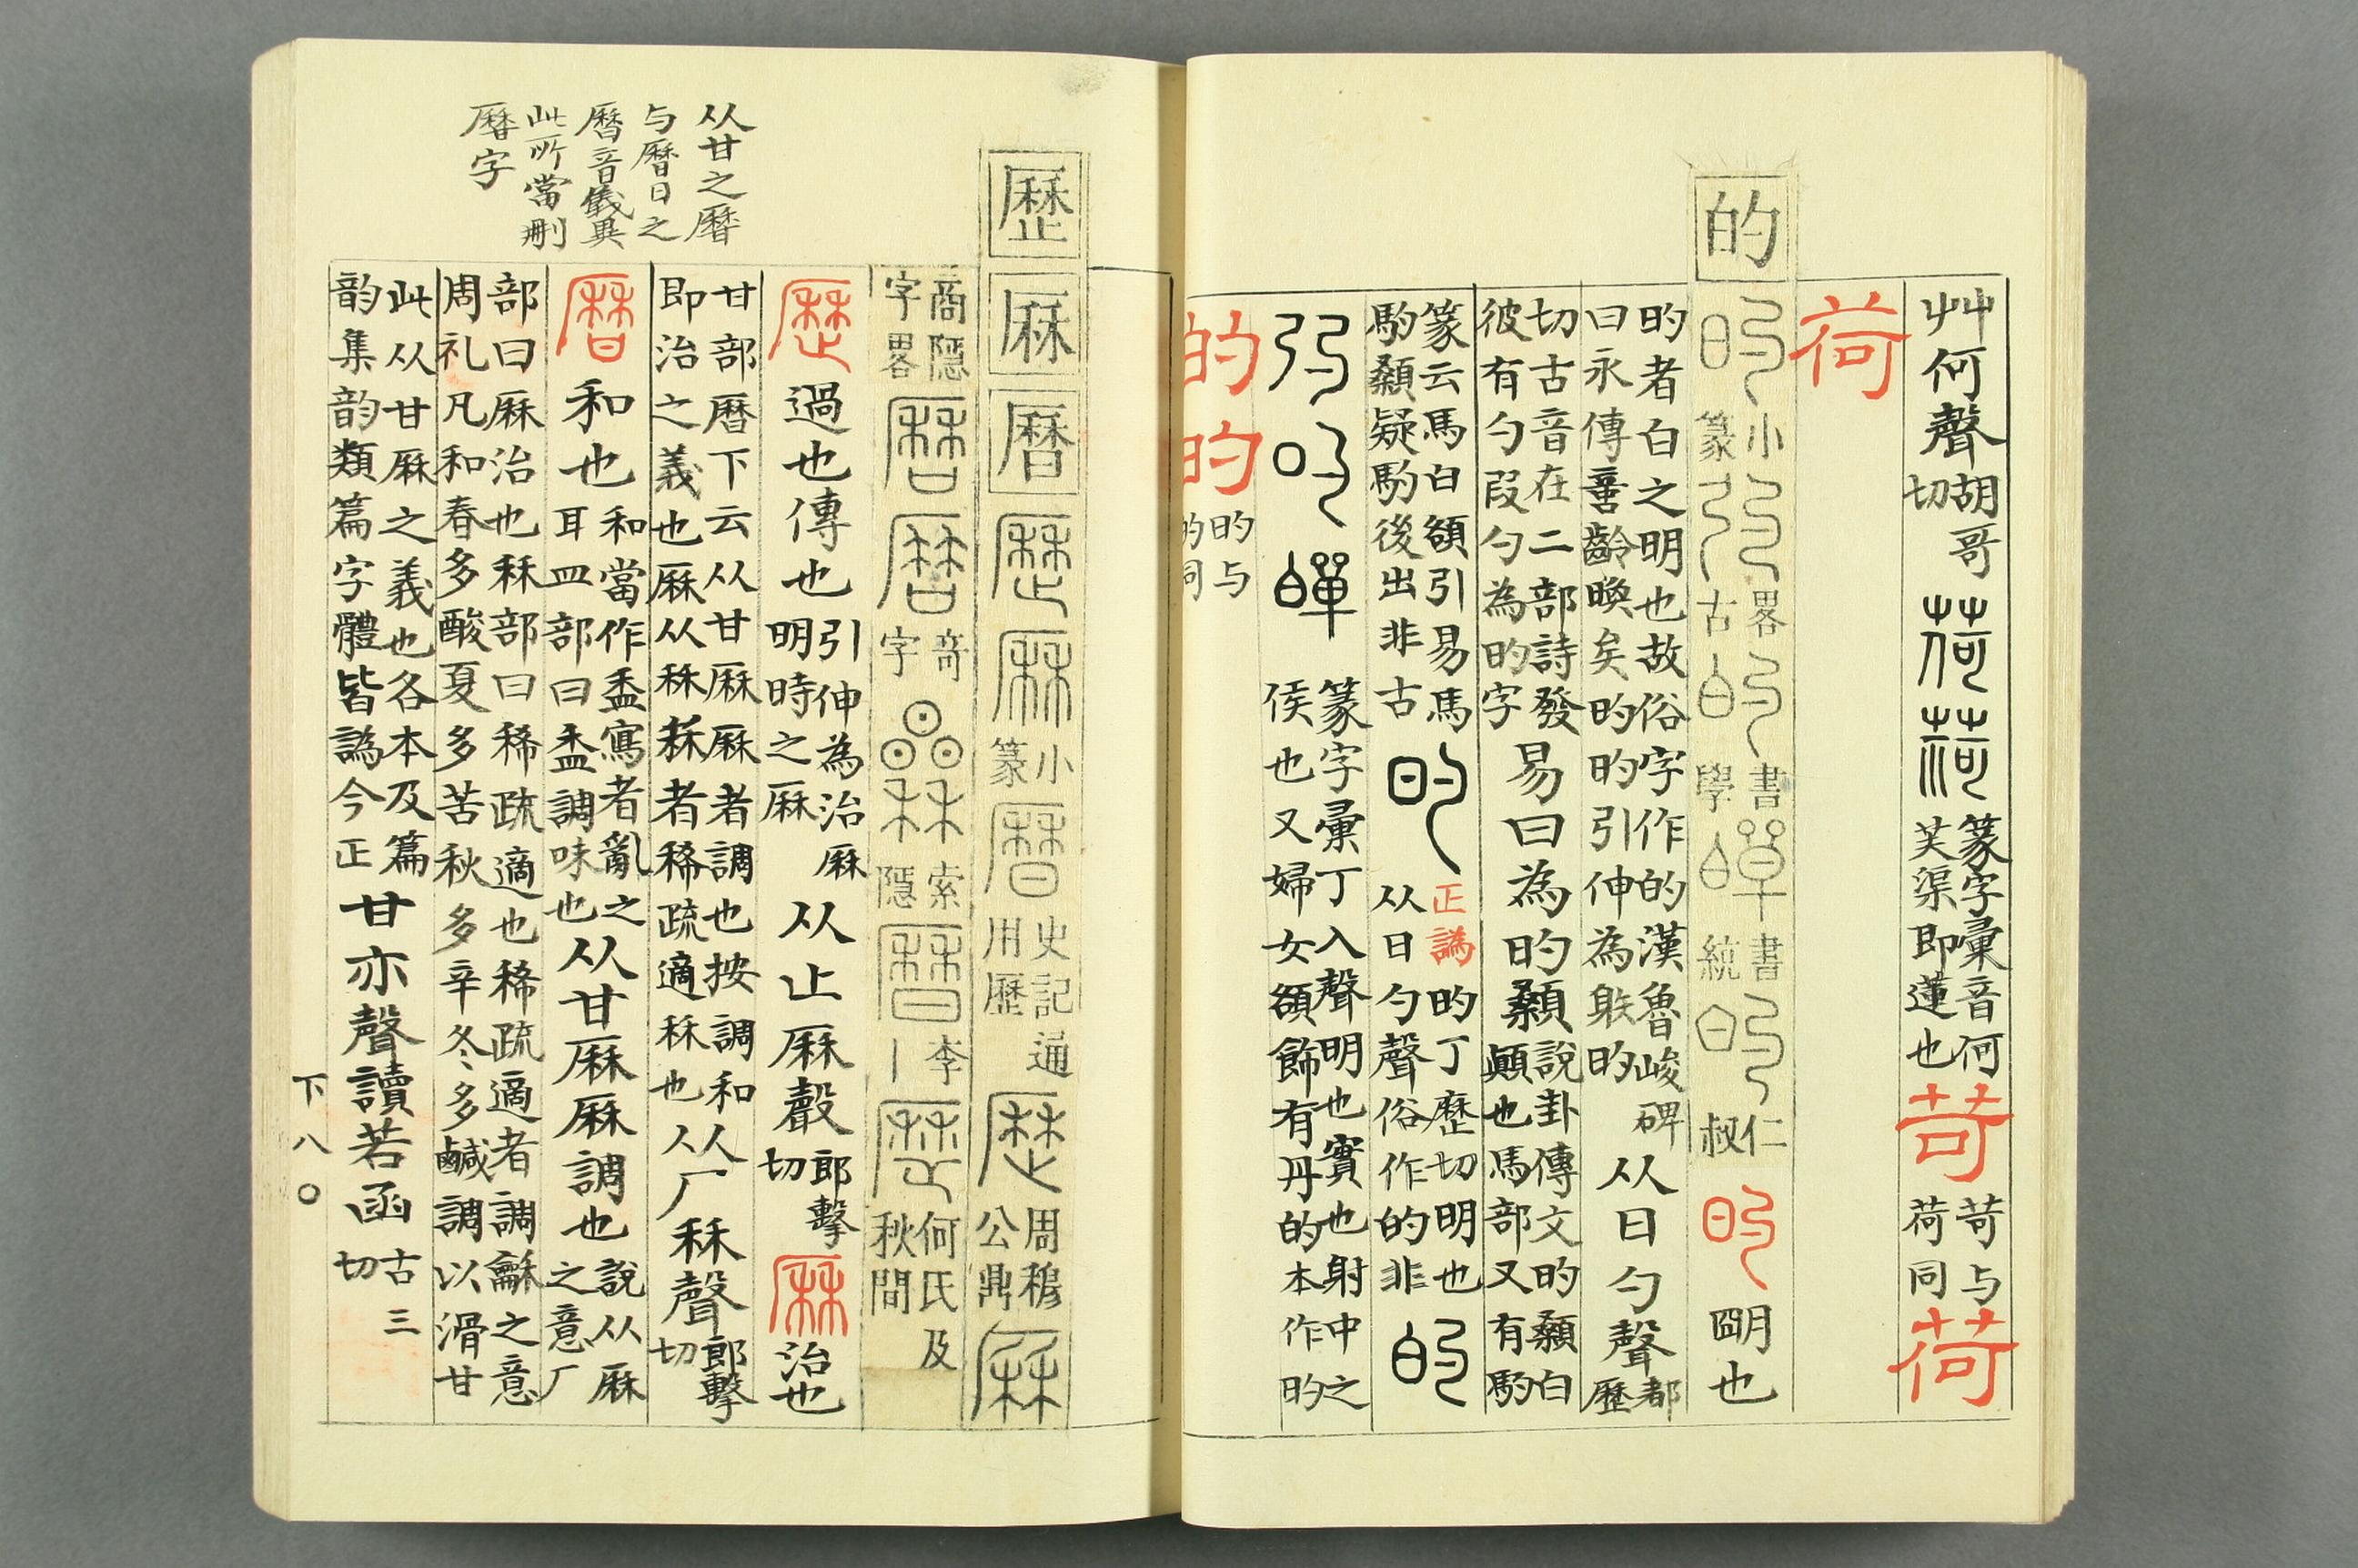 艸何聲 胡哥切 荷 荷 篆字彙音何芙渠即蓮也 苛 苛与荷同 荷
荷
的
小篆 畧古 書學 書統 仁叔 旳 朙也
旳者白之明也故俗字作的漢魯峻碑
曰永傳啬齡晥矣旳旳旳引伸為躲旳 从日勺聲 都歷
切古音在二部詩發彼有勺叚勺為旳字 易曰為旳顙 說卦傳文旳顙白顚也馬部又有馰
篆云馬白頟引易馬馰顙疑馰後出非古 旳 正譌 旳丁歷切明也从日勺聲俗作的非 的
篆字彙丁入聲明也實也射中之侯也又婦女頟飾有丹的本作旳
的 旳 旳与的同
歷 厤 曆 歷 厤 小篆 曆 史記通用歷 歷 周穆公鼎 厤
商隱字畧 奇字 索隱 李 何氏及秋間
歷 過也傳也 引伸為治厤明時之厤 从止厤聲 郎擊切 厤 治也
甘部曆下云从甘厤厤者調也按調和
即治之義也厤从秝秝者稀疏適秝也 从厂秝聲 郎擊切
曆 和也 和當作盉寫者亂之耳皿部曰盉調味也 从甘厤厤調也 說从厤之意厂
部曰厤治也秝部曰稀疏適也稀疏適者調龢之意
周礼凡和春多酸夏多苦秋多辛冬多鹹調以滑甘
此从甘厤之義也各本及篇
韵集韵類篇字體皆譌今正 甘亦聲讀若函 古三切
从甘之曆
与曆日之
曆音儀異
此所當刪
曆字
下八〇